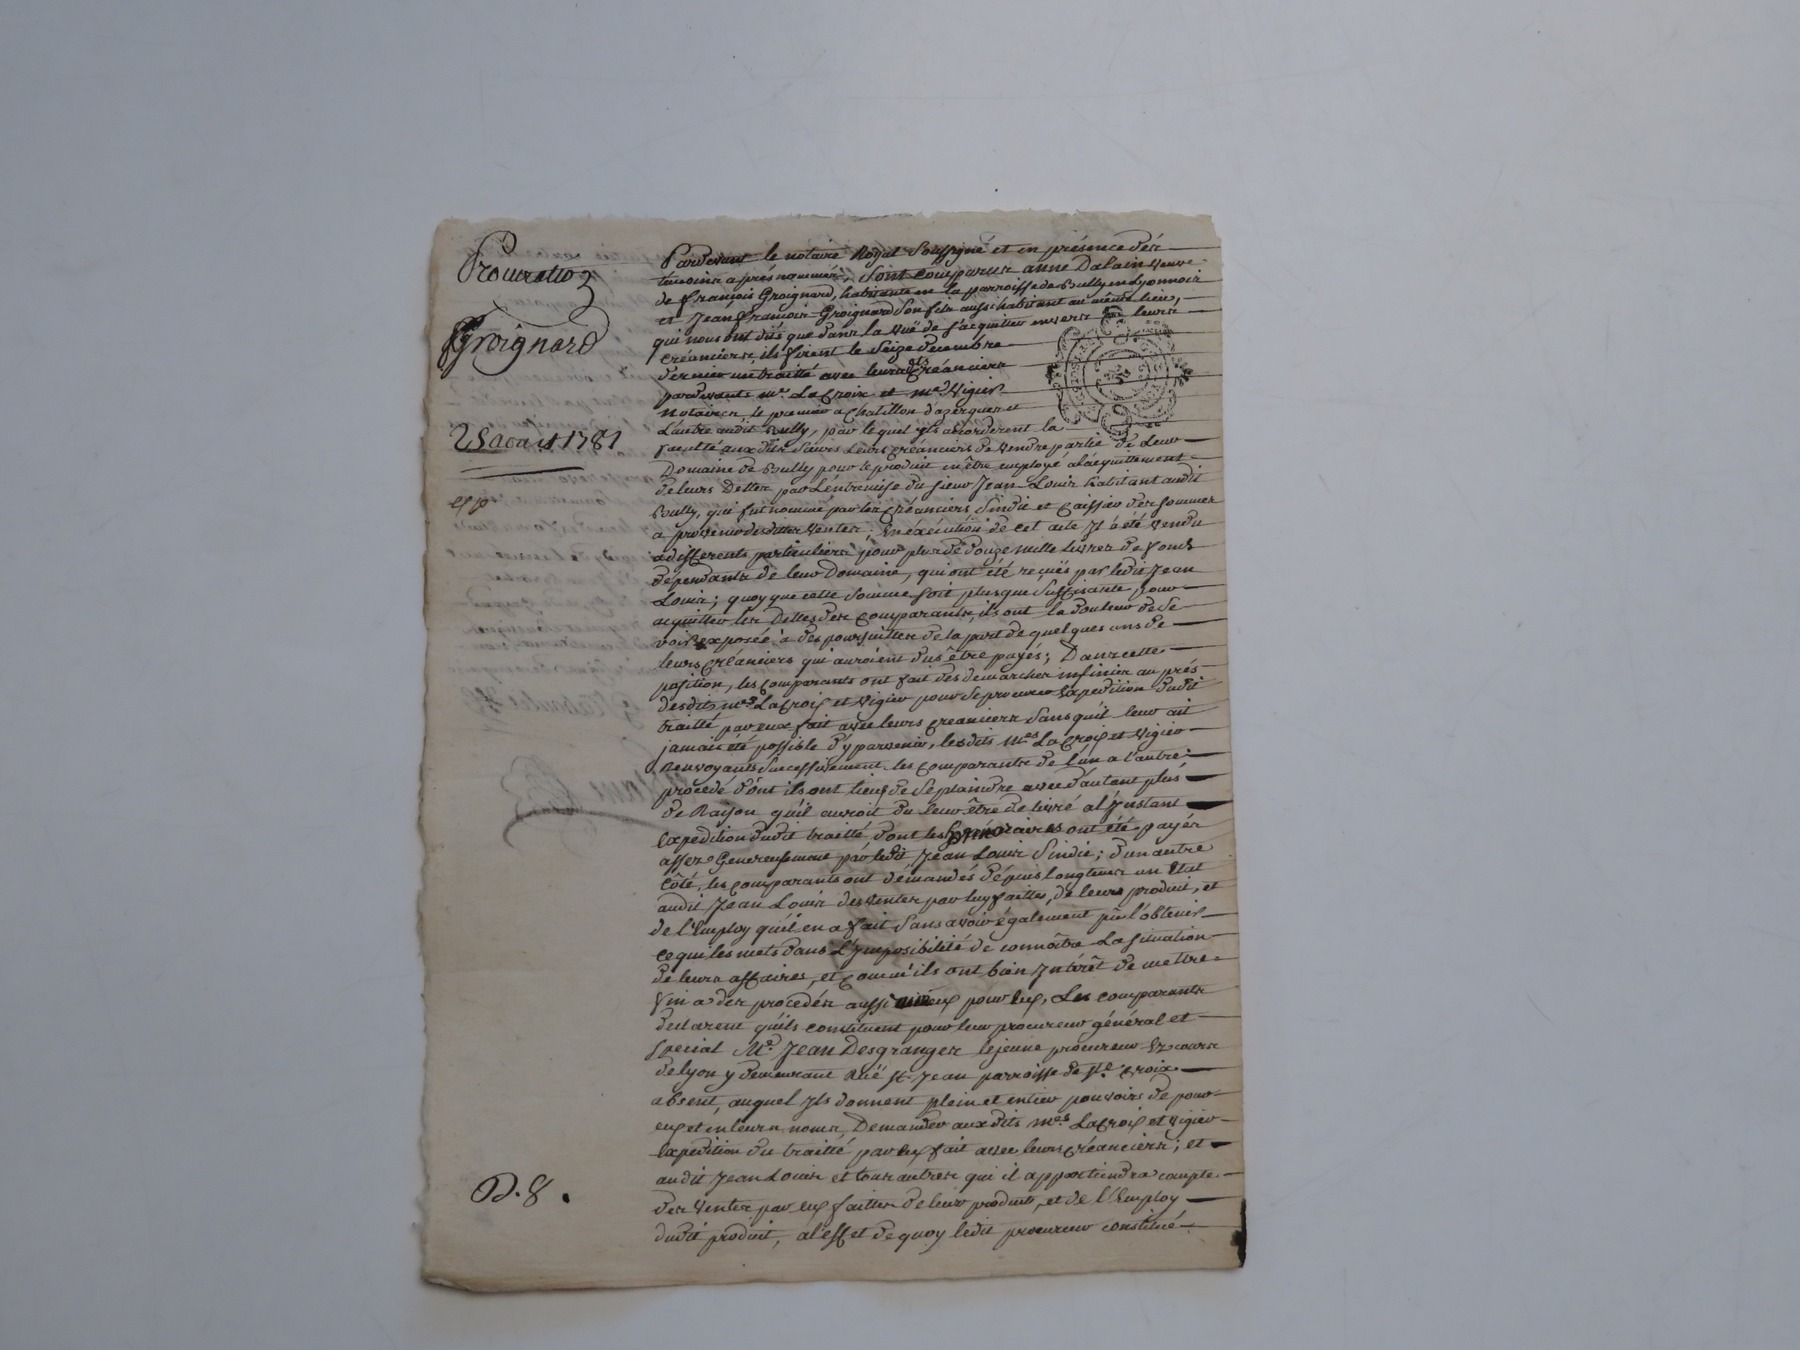 Procuration
Groignard
25 aoust 1781
Pardevant le notaire Royal Soussigné et en présence des
temoins aprés nommés, sont comparus anne Dalain veuve
de françois Groignard, habitante en la parroisse de Bully en Lyonnois
et Jean françois Groignard son fils aussi habitant au même lieu,
qui nous ont dits que dans la vuë de s'acquitter envers leurs
créanciers, ils firent le Seize decembre
dernier un traitté avec leursdts Créanciers
pardevants me. LaCroix et me Vigier
Notaires, le premier a Chatillon d'azergues et
L'autre audit Bully, par lequel ils accorderent la
faculté auxdits Sieurs Leurs créanciers de vendre partie de Leur
Domaine de Bully pour le produit en être employé al'acquittement
de leurs Dettes par L'entremise du sieur Jean Louis habitant audit
Bully, qui fut nommé par les créanciers Sindic et Caissier des sommes
a provenir desdittes ventes; en éxécution de cet acte Il a été vendu
adifferents particuliers pour plus de douze mille Livres de fonds
dépendants de leur Domaine, qui ont été reçuës par ledit Jean
Louis; quoyque cette somme soit plus que suffisante pour
acquitter les Dettes des comparants, ils ont la douleur de se
voir exposée à des poursuittes de la part de quelques uns de
leurs créanciers qui auroient dus être payés; Dans cette
position, les comparants ont fait des demarches infinies au prés
desdits mes LaCroix et Vigier pour se procurer Expedition dudit
traitté par eux fait avec leurs creanciers sans qu'il leur ait
jamais été possible d'y parvenir, lesdits mes LaCroix et Vigier
Renvoyants Successivement les comparants de l'un a l'autre;
procédé d'ont ils ont lieu de se plaindre avec d'autant plus
de Raison qu'il auroit du leur être delivré al'Instant
Expedition dudit traitté dont les honoraires ont été payés
assez Genereusement par ledit Jean Louis Sindic; d'un autre
côté, les comparants ont démandés dépuis longtems un Etat
audit Jean Louis des ventes par luy faittes, de leurs produit, et
de l'Employ qu'il en a fait Sans avoir également pû l'obtenir
ce qui les mets dans L'Impossibilité de connoître La situation
de leurs affaires, et comm'ils ont bien Intérêt de mettre
fin a des procedés aussi pour Eux, Les comparants
declarent qu'ils constituent pour leur procureur général et
special Me. Jean Desgranges lejeune procureur Ez cours
de lyon y demeurant Ruë St. Jean parroisse de Ste. Croix
absent, auquel Ils donnent plein et entier pouvoirs de pour
eux et en leurs noms Demander auxdits mes LaCroix et Vigier
Expedition du traitté par Eux fait avec leurs créanciers; et
audit Jean Louis et tous autres qui il appartiendra compte
des ventes par eux faittes de leur produits, et de l'Employ
dudit produit, al'effet de quoy ledit procureur constitué
D. 8.